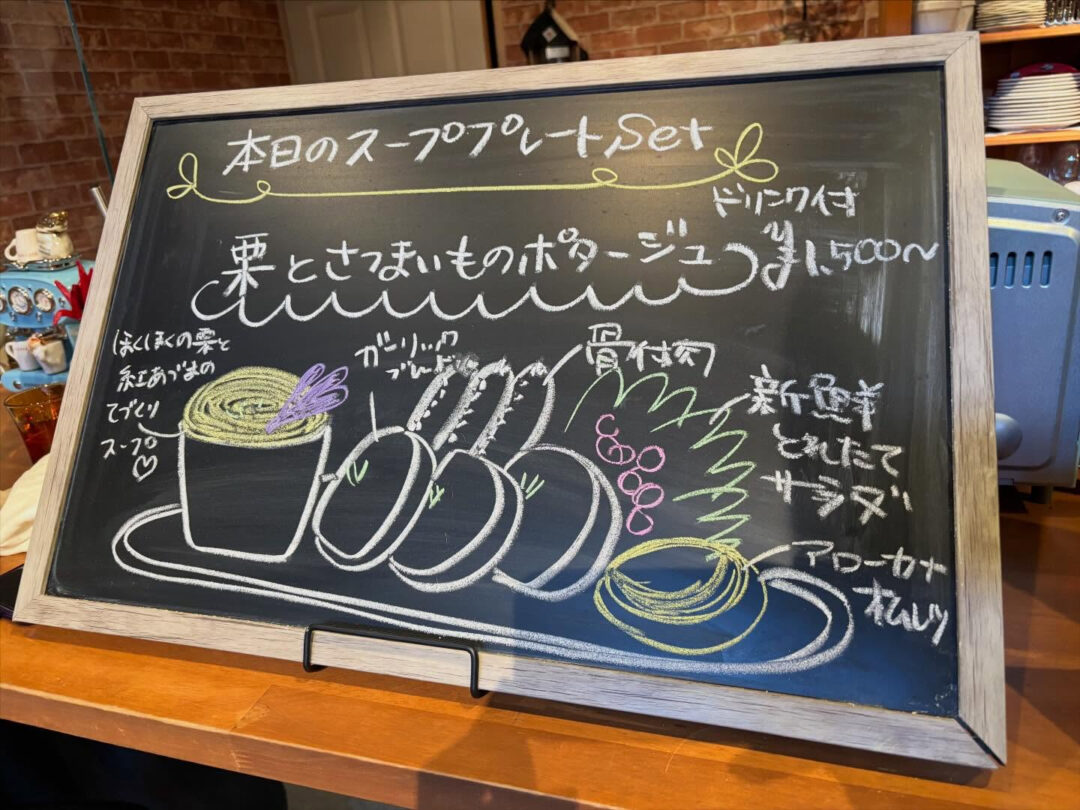 本日のスーププレートSet
ドリンク付
栗とさつまいものポタージュ
¥1,500〜
ほくほくの栗と
紅あづまの
てづくり
スープ♡
ガーリック
ブレッド
骨付肉
新鮮
とれたて
サラダ
アローカナ
オムレツ